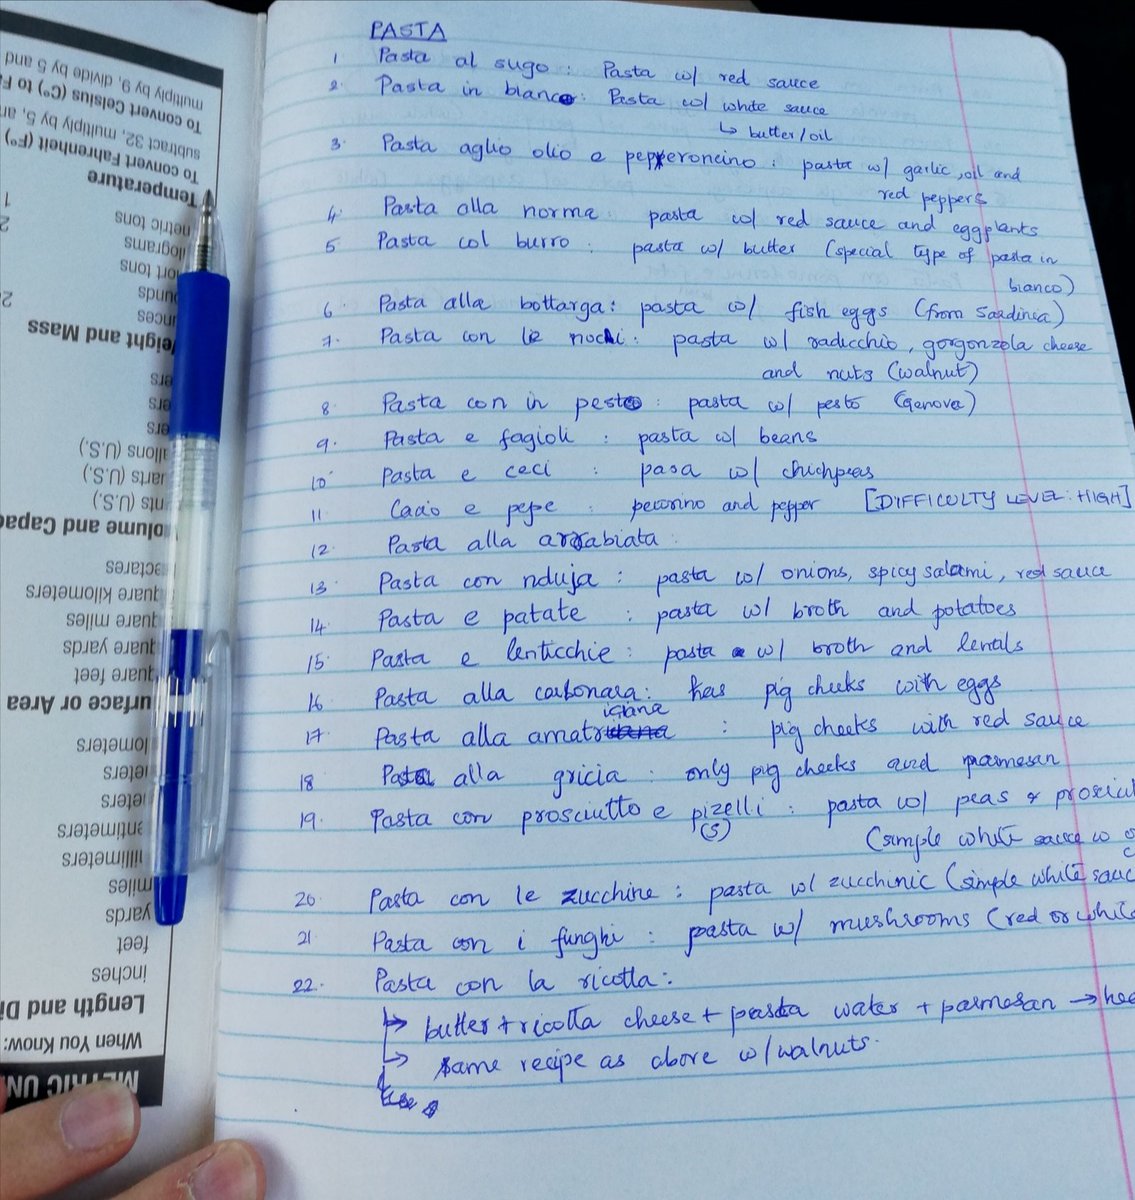 PASTA
1 Pasta al sugo : Pasta w/ red sauce
2. Pasta in bianco: Pasta w/ white sauce
↳ butter/oil
3. Pasta aglio olio e pepperoncino : pasta w/ garlic, oil and
red peppers
4. Pasta alla norma : pasta w/ red sauce and eggplants
5. Pasta col burro : pasta w/ butter (special type of pasta in
bianco)
6. Pasta alla bottarga: pasta w/ fish eggs (from Sardinea)
7. Pasta con le nochi: pasta w/ radicchio, gorgonzola cheese
and nuts (walnut)
8. Pasta con in pesto : pasta w/ pesto (Genova)
9. Pasta e fagioli : pasta w/ beans
10. Pasta e ceci : pasa w/ chichpeas
11 Cacio e pepe : pecorino and pepper [DIFFICULTY LEVEL: HIGH]
12. Pasta alla arrabiata :
13. Pasta con nduja : pasta w/ onions, spicy salami, red sauce
14. Pasta e patate : pasta w/ broth and potatoes
15. Pasta e lenticchie : pasta w/ broth and lentals
16. Pasta alla carbonara: has pig cheeks with eggs
17. Pasta alla amatriciana : pig cheeks with red sauce
18 Pasta alla gricia : only pig cheeks and parmesan
19. Pasta con prosciutto e pizelli : pasta w/ peas & prosciut
(s)
(simple white sauce w
20. Pasta con le zucchine : pasta w/ zucchinic (simple white sauc
21. Pasta con i funghi : pasta w/ mushrooms (red or white
22. Pasta con la ricotta:
↳ butter + ricotta cheese + pasta water + parmesan → hea
↳ same recipe as above w/ walnuts.
multiply by 9, divide by 5 and
To convert Celsius (C°) to F
subtract 32, multiply by 5, an
To convert Fahrenheit (F°)
Temperature
etric tons
ilograms
ort tons
unds
unces
eight and Mass
ers
ers
ers
allons (U.S.)
arts (U.S.)
nts (U.S.)
olume and Capac
ectares
quare kilometers
quare miles
quare yards
quare feet
urface or Area
lometers
eters
eters
entimeters
illimeters
miles
yards
feet
inches
Length and Di
When You Know:
METRIC UNI